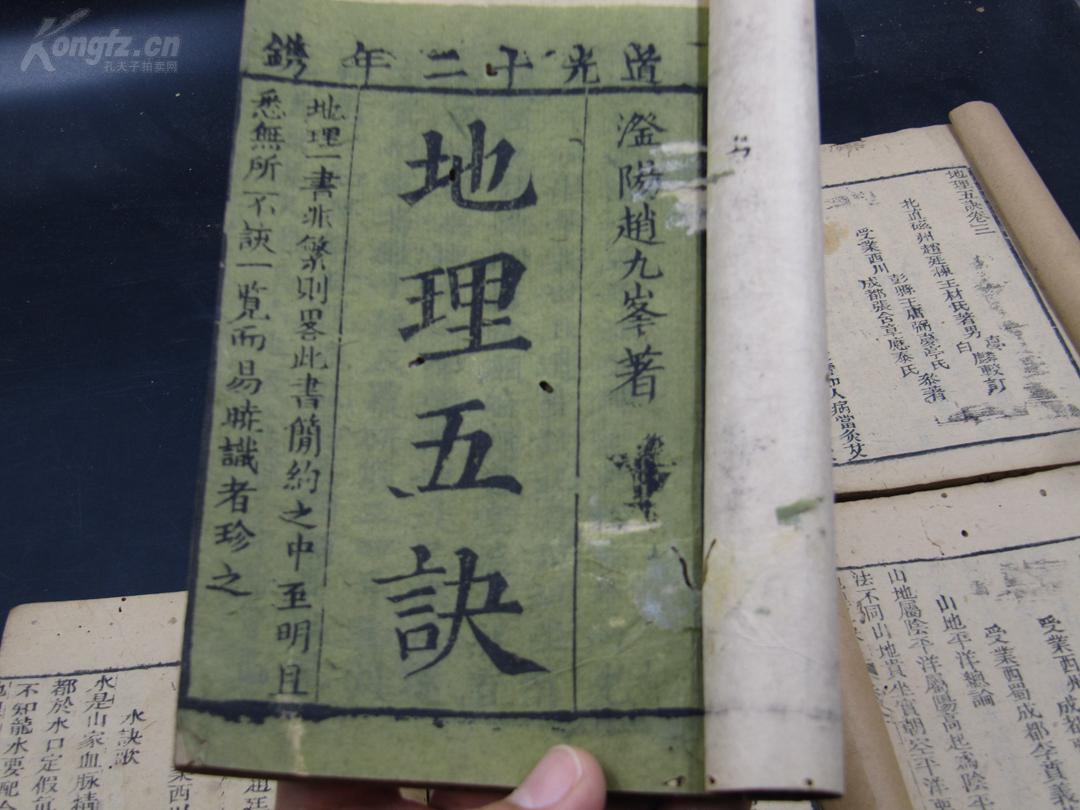 Kongfz.cn
孔夫子拍卖网
道光十二年鐫
滏陽趙九峯著
地理五訣
地理一書非繁則畧此書簡約之中至明且
悉無所不訣一覧而易暁識者珍之
地理五訣卷三
北直磁州趙廷棟玉材氏著男白
受業西川
彭縣王庸弼
成都張含章應泰氏
水訣歌
水是山家血脉精
都於水口定
不知龍水要配合
受業西蜀成都
山地平洋總論
山地屬陰平洋屬陽高起為陰平
法不同山地貴坐實朝空平洋要